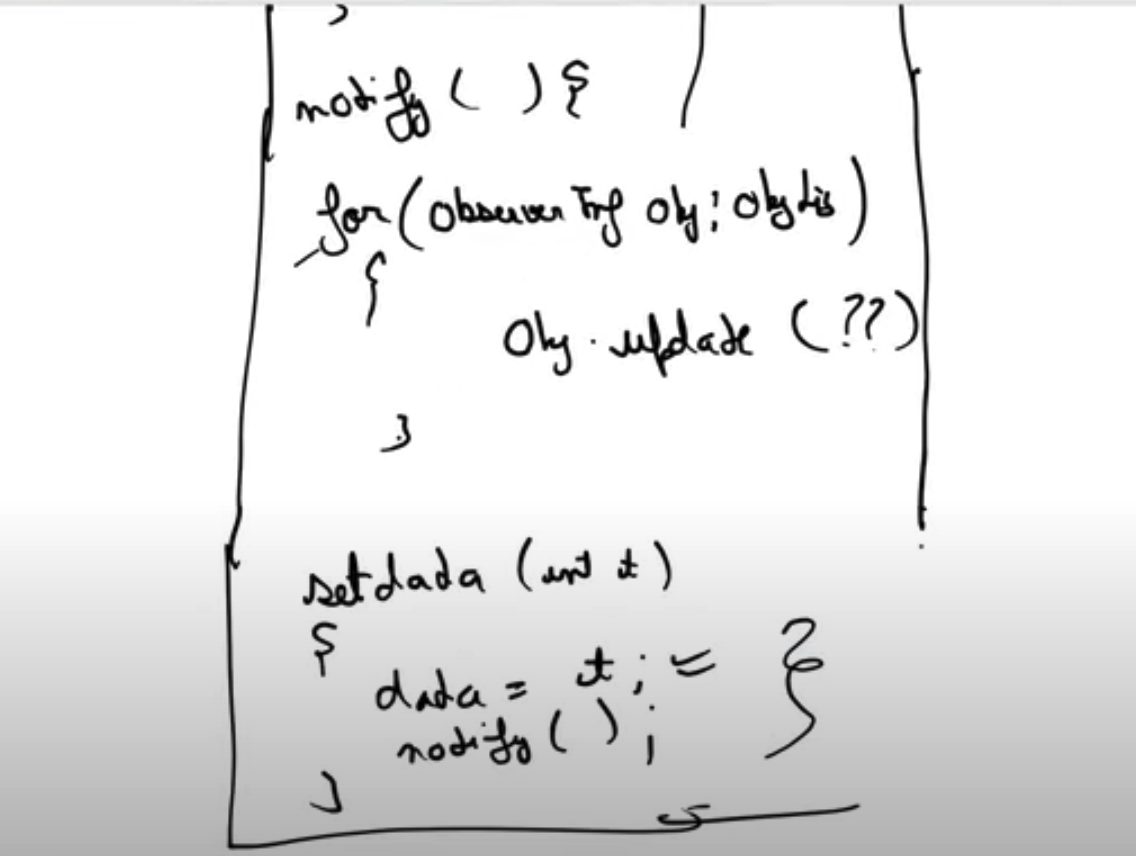 }
notify ( ) {
for ( Observer Inf Obj : ObjLis )
{
Obj . update ( ?? )
}
setdada ( int t )
{
data = t ; =
notify ( ) ;
}